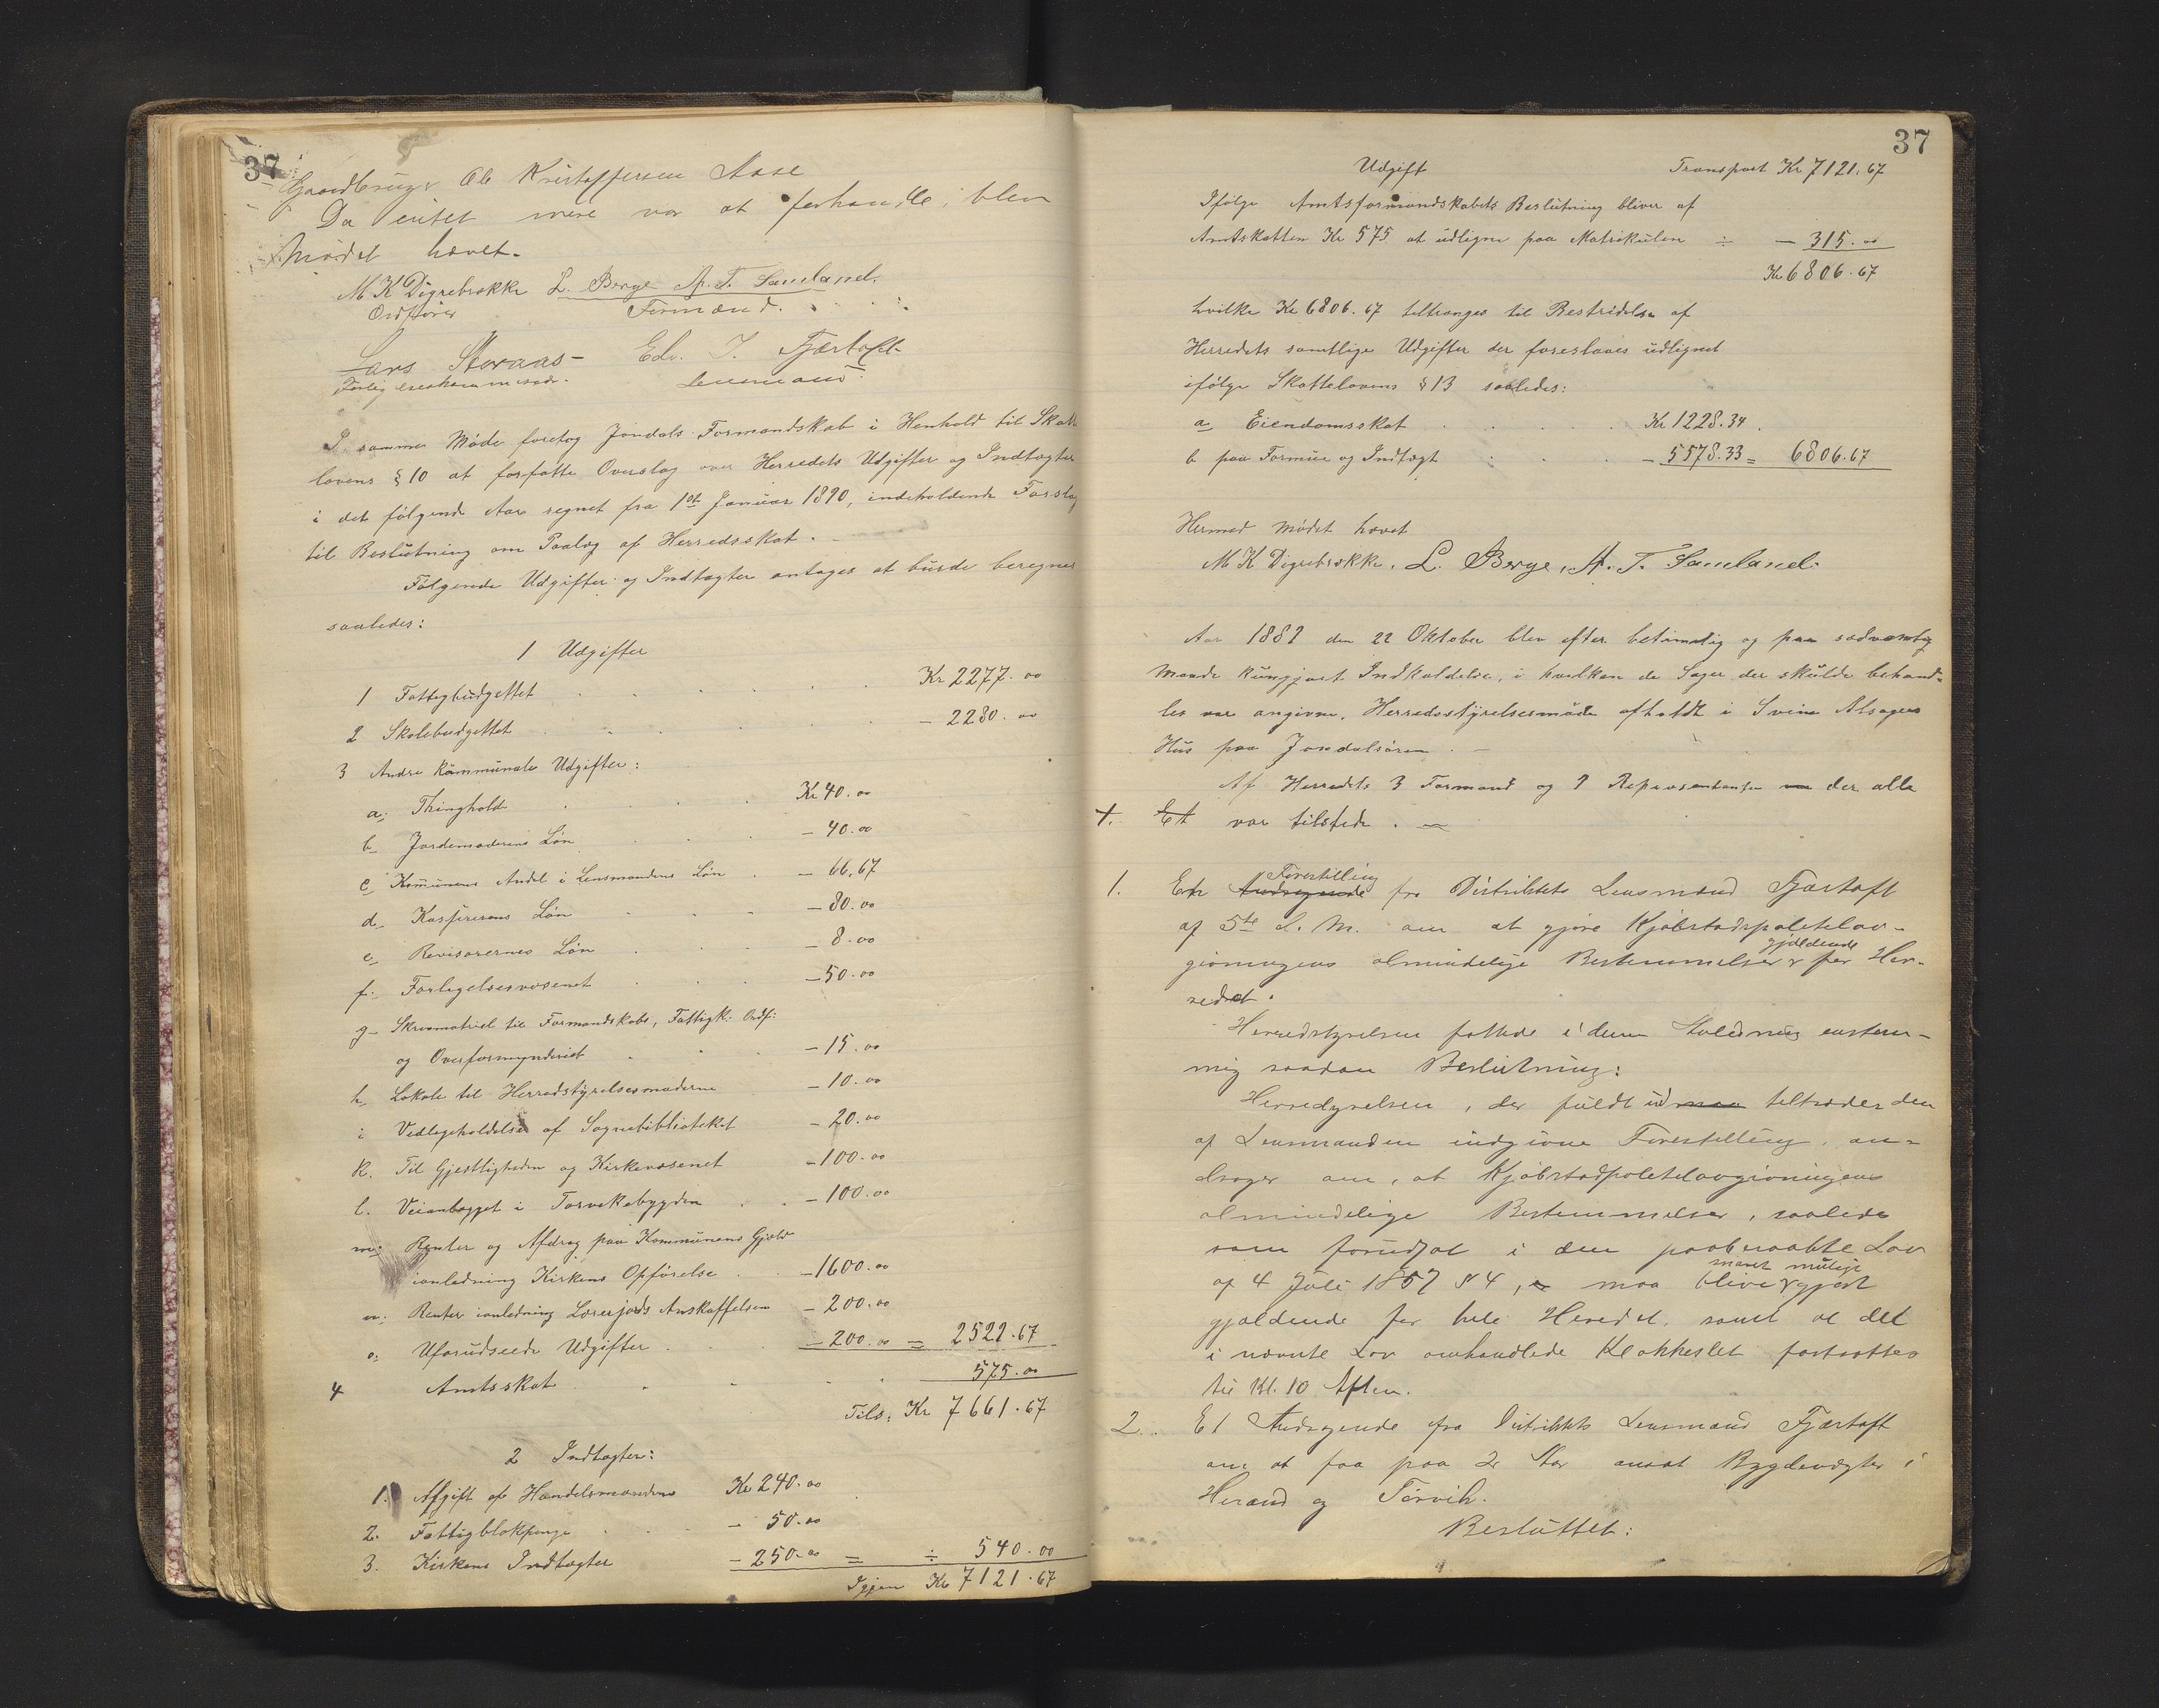 37
Gaardbruger Ole Kristoffersen Aase
Da intet mere var at forhandle, blev
Mødet hævet.
M K Digrebrække L. Berge A. T. Samland.
Ordfører Formænd.
Lars Storaas - Edv. J. Fjærtoft
Forligelseskommissær. Lensmand
I samme Møde foretog Jondals Formandskab i Henhold til Skatte
lovens § 10 at forfatte Overslag over Herredets Udgifter og Indtægter
i det følgende Aar regnet fra 1st Januar 1890, indeholdende Forslag
til Beslutning om Paalæg af Herredsskat. -
Følgende Udgifter og Indtægter antages at burde beregnes
saaledes:
1 Udgifter
1 Fattigbudgettet Kr 2277.00
2 Skolebudgettet - 2280.00
3 Andre kommunale Udgifter:
a. Thinghold Kr 40.00
b. Jordemoderens Løn - 40.00
c. Komunens Andel i Lensmandens Løn - 66,67
d. Kassererens Løn - 80.00
e. Revisorernes Løn - 8.00
f. Forligelsesvæsenet - 50.00
g. Skrivmatriel til Formandskabs, Fattigk. Ordf:
og Overformynderiet - 15.00
h. Lokale til Herredstyrelsesmøderne - 10.00
i Vedligeholdelse af Sognebiblioteket - 20.00
k. Til Gjestligheden og Kirkevæsenet - 100.00
l. Veianlægget i Torvikebygden - 100.00
m. Renter og Afdrag paa Kommunens Gjæld
ianledning Kirkens Opførelse - 1600.00
n. Renter ianledning Lærerjords Anskaffelsen - 200.00
o. Uforudseede Udgifter - 200.00 = 2529.67
4 Amtsskat 575.00
Tils: Kr 7661.67
2 Indtægter:
1. Afgift af Handelsmændene Kr 240.00
2. Fattigblokpenge - 50.00
3. Kirkens Indtægter - 250.00 = ÷ 540.00
Igjen Kr 7121.67
37
Udgift Transport Kr 7121.67
Ifølge Amtsformandskabets Beslutning bliver af
Amtskatten Kr 575 at udligne paa Matrikulen ÷ - 315.00
Kr 6806.67
hvilke Kr 6806.67 tiltrænges til Bestridelse af
Herredets samtlige Udgifter der foreslaaes udlignet
ifølge Skattelovens § 13 saaledes:
a Eiendomsskat Kr 1228.34
b paa Formue og Indtægt - 5578.33 = 6806.67
Hermed Mødet hævet
M K Digrebrække. L. Berge, A. T. Samland.
Aar 1889 den 22 Oktober blev efter betimelig og paa sædvanlig
Maade kungjort Indkaldelse, i hvilken de Sager der skulde behand-
les var angivne, Herredsstyrelsesmøde afholdt i Svein Alsagers
Hus paa Jondalsøren. -
Af Herredets 3 Formænd og 9 Repræsentanter der alle
1. Et var tilstede. -
1. En Andragende Forestilling fra Distriktets Lensmand Fjærtoft
af 5te d. M. om at gjøre Kjøbstadspolitilov-
givningens almindelige Bestemmelser gjældende for Her-
redet.
Herredstyrelsen fattede i den Anledning enstem-
mig saadan Beslutning:
Herredyrelsen, der fuldt ud tiltræder den
af Lensmanden indgivne Forestilling, an-
drager om, at Kjøbstadpolitilovgivningens
almindelige Bestemmelser, saaledes
som forudsat i den paaberaabte Lov
af 4 Juli 1857 § 4, maa blive snarest mulige gjort
gjældende for hele Herredet, samt at det
i nævnte Lov omhandlede Klokkeslet fastsættes
til Kl. 10 Aften.
2. Et Andragende fra Distriktets Lensmand Fjærtoft
om at faa paa 2 Aar ansat Bygdevægter i
Herand og Torvik.
Besluttet: